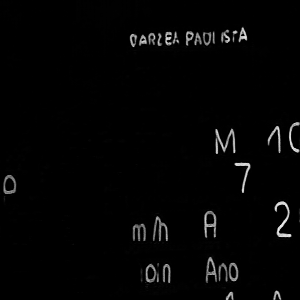 VARZEA PAULISTA
M 10
7
p
m/h A 2
oin Ano